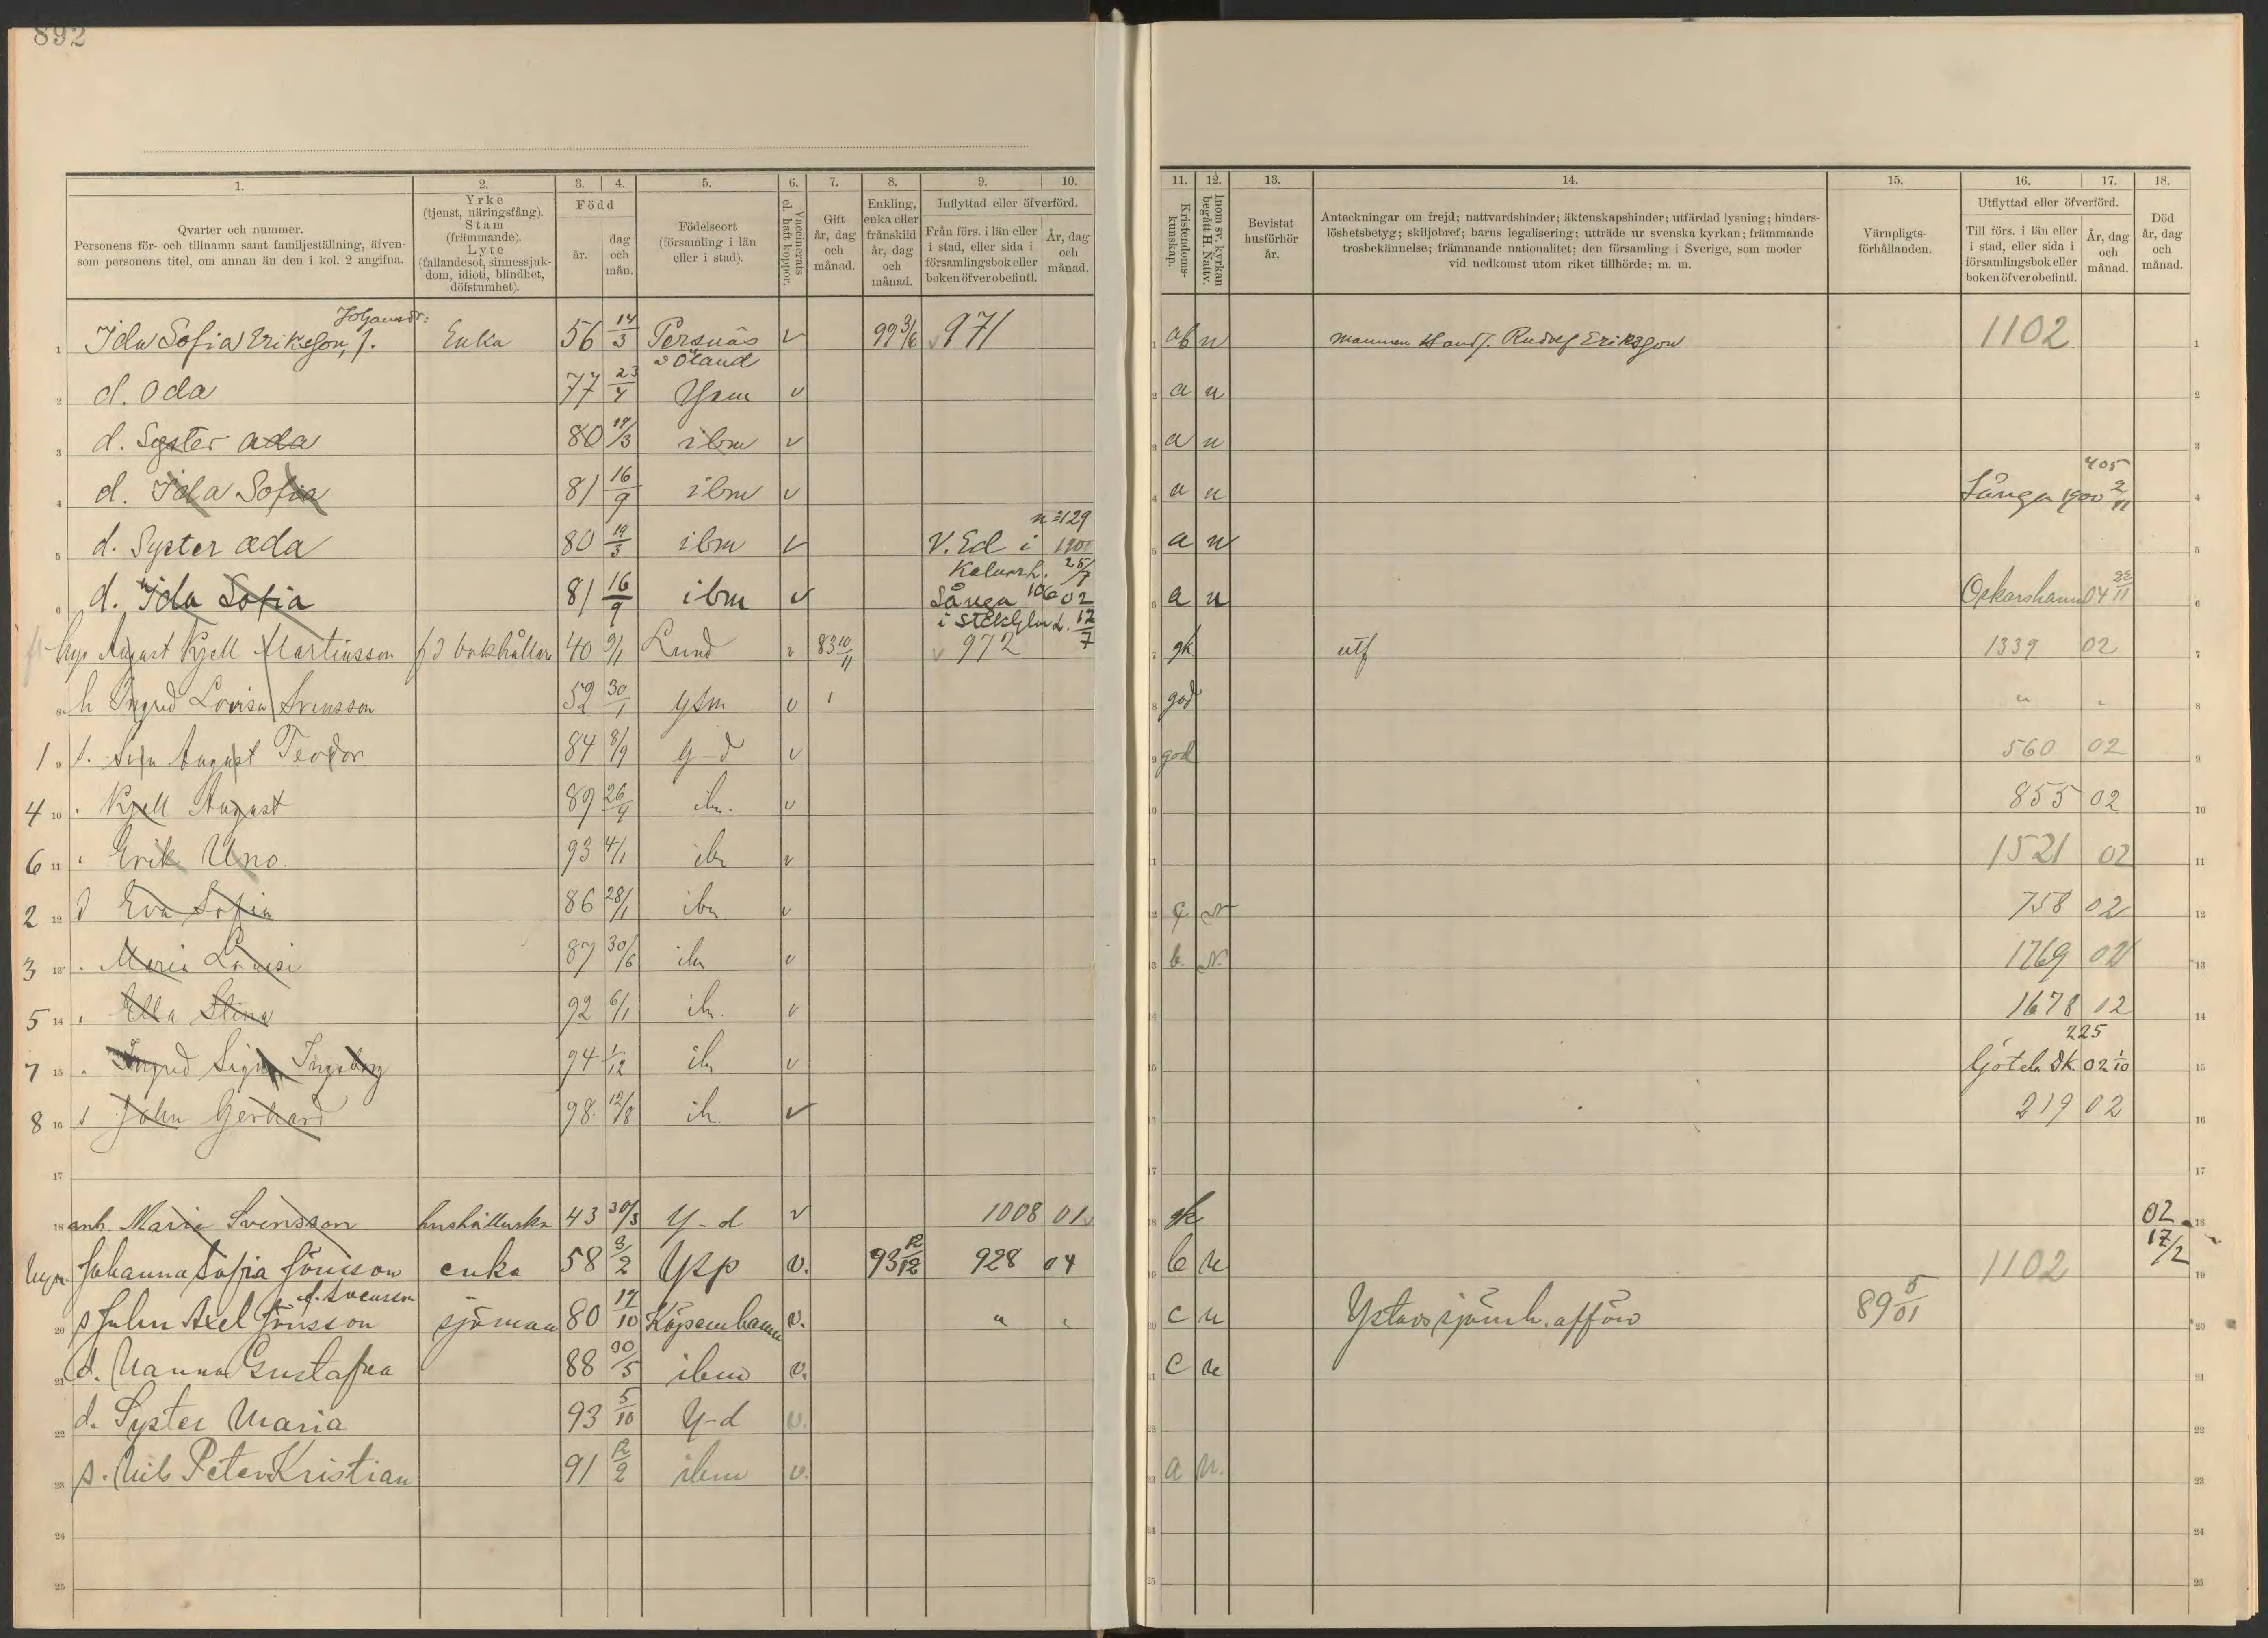 892
1. 2. 3. 4. 5. 6. 7. 8. 9. 10. 11. 12. 13. 14. 15. 16. 17. 18.
Qvarter och nummer.
Personens för- och tillnamn samt familjeställning, äfven-
som personens titel, om annan än den i kol. 2 angifna.
Yrke
(tjenst, näringsfång).
Stam
(främmande).
Lyte
(fallandesot, sinnessjuk-
dom, idioti, blindhet,
döfstumhet).
Född
år.
dag
och
mån.
Födelseort
(församling i län
eller i stad).
Vaccinerats
el. haft koppor.
Gift
år, dag
och
månad.
Enkling,
enka eller
frånskild
år, dag
och
månad.
Inflyttad eller öfverförd.
Från förs. i län eller
i stad, eller sida i
församlingsbok eller
boken öfver obefintl.
År, dag
och
månad.
Kristendoms-
kunskap.
Inom sv. kyrkan
begått H. Nattv.
Bevistat
husförhör
år.
Anteckningar om frejd; nattvardshinder; äktenskapshinder; utfärdad lysning; hinders-
löshetsbetyg; skiljobref; barns legalisering; utträde ur svenska kyrkan; främmande
trosbekännelse; främmande nationalitet; den församling i Sverige, som moder
vid nedkomst utom riket tillhörde; m. m.
Värnpligts-
förhållanden.
Utflyttad eller öfverförd.
Till förs. i län eller
i stad, eller sida i
församlingsbok eller
boken öfver obefintl.
År, dag
och
månad.
Död
år, dag
och
månad.
Johansdr:
1 Ida Sofia Eriksson, f. Enka 56 14/3 Persnäs v 99 3/6 v 971 1 ab n mannen Handl. Rudolf Eriksson 1102 1
Öland
2 d. Oda 77 23/4 Ysm v 2 a n 2
3 d. Syster Ada 80 19/3 ibm v 3 a n 3
405
4 d. Ida Sofia 81 16/9 ibm v 4 a n Långa 1900 2/11 4
n=129
5 d. Syster Ada 80 19/3 ibm v V. Ed i 1901 5 a n 5
25/7
6 d. Ida Sofia 81 16/9 ibm v Långa 106 02 6 a n Oskarshamn 04 22/11 6
i Stckhlm L. 12/7
August Kjell Martinsson f d bokhållare 40 9/1 Lund v 83 10/11 v 972 7 gk utf 1339 02 7
8 h Ingrid Lovisa Svensson 52 30/1 Ysm v ' 8 god " " 8
1 9 s. Sven August Teodor 84 8/9 Y-d v 9 god 560 02 9
4 10 " Kjell August 89 26/4 ibm v 10 855 02 10
6 11 " Erik Uno. 93 4/1 ibm v 11 1521 02 11
2 12 d Eva Sofia 86 28/1 ibm v 12 N 758 02 12
3 13 " Maria Lovisa 87 30/6 ibm v 13 b. N. 1769 02 13
5 14 " Ella Stina 92 6/1 ibm v 14 1678 02 14
225
7 15 " Ingrid Signe Ingeborg 94 1/12 ibm v 15 Göteb. Dk. 02 1/10 15
8 16 s John Gerhard 98 12/8 ib. v 16 219 02 16
17 17 17
18 Maria Svensson hushållerska 43 30/3 Y-d v 1008 01 18 gk 02 17/2 18
Johanna Sofia Jönsson enka 58 3/2 Ysp v. 93 12/12 928 04 19 b n 1102 19
f. Svensson
20 s John Axel Jönsson sjöman 80 17/10 Köpenhamn v. " " 20 c n Ystads sjömh. afförd 89 5/01 20
21 d. Nanna Gustafva 88 30/5 ibm v. 21 c n 21
22 d. Syster Maria 93 5/10 Y-d v. 22 22
23 s. Nils Peter Kristian 91 12/2 ibm v. 23 a n. 23
24 24 24
25 25 25